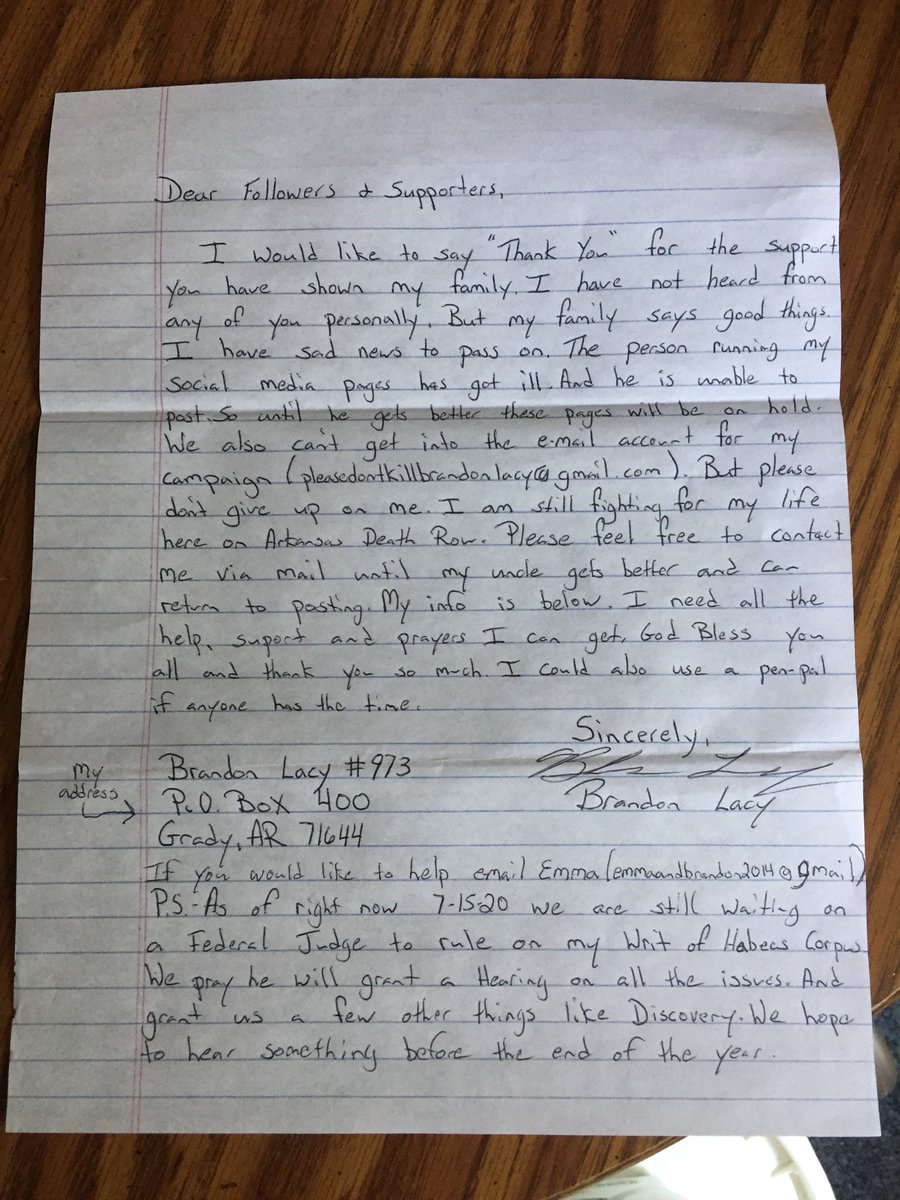 Dear Followers & Supporters,
I would like to say "Thank You" for the support
you have shown my family. I have not heard from
any of you personally. But my family says good things.
I have sad news to pass on. The person running my
social media pages has got ill. And he is unable to
post. So until he gets better these pages will be on hold.
We also can't get into the e-mail account for my
campaign (pleasedontkillbrandonlacy@gmail.com). But please
don't give up on me. I am still fighting for my life
here on Arkansas Death Row. Please feel free to contact
me via mail until my uncle gets better and can
return to posting. My info is below. I need all the
help, suport and prayers I can get. God Bless you
all and thank you so much. I could also use a pen-pal
if anyone has the time.
Sincerely,
Brandon Lacy
Brandon Lacy
my address →
Brandon Lacy #973
P.O. Box 400
Grady, AR 71644
If you would like to help email Emma (emmaandbrandon2014@gmail)
P.S.-As of right now 7-15-20 we are still waiting on
a Federal Judge to rule on my Writ of Habeas Corpus
We pray he will grant a Hearing on all the issues. And
grant us a few other things like Discovery. We hope
to hear something before the end of the year.